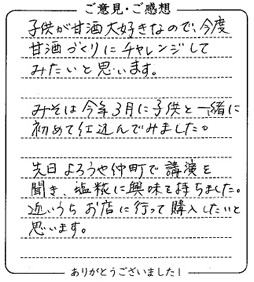 ご意見・ご感想
子供が甘酒大好きなので、今度
甘酒づくりにチャレンジして
みたいと思います。
みそは今年3月に子供と一緒に
初めて仕込んでみました。
先日よろうや仲町で講演を
聞き、塩糀に興味を持ちました。
近いうちお店に行って購入したいと
思います。
ありがとうございました!